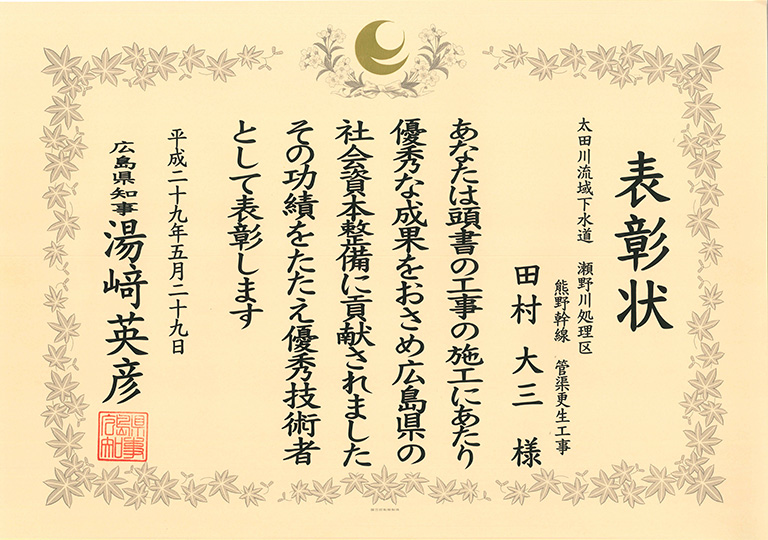 表彰状
太田川流域下水道 瀬野川処理区
熊野幹線 管渠更生工事
田村大三様
あなたは頭書の工事の施工にあたり
優秀な成果をおさめ広島県の
社会資本整備に貢献されました
その功績をたたえ優秀技術者
として表彰します
平成二十九年五月二十九日
広島県知事 湯﨑英彦
広島県知事